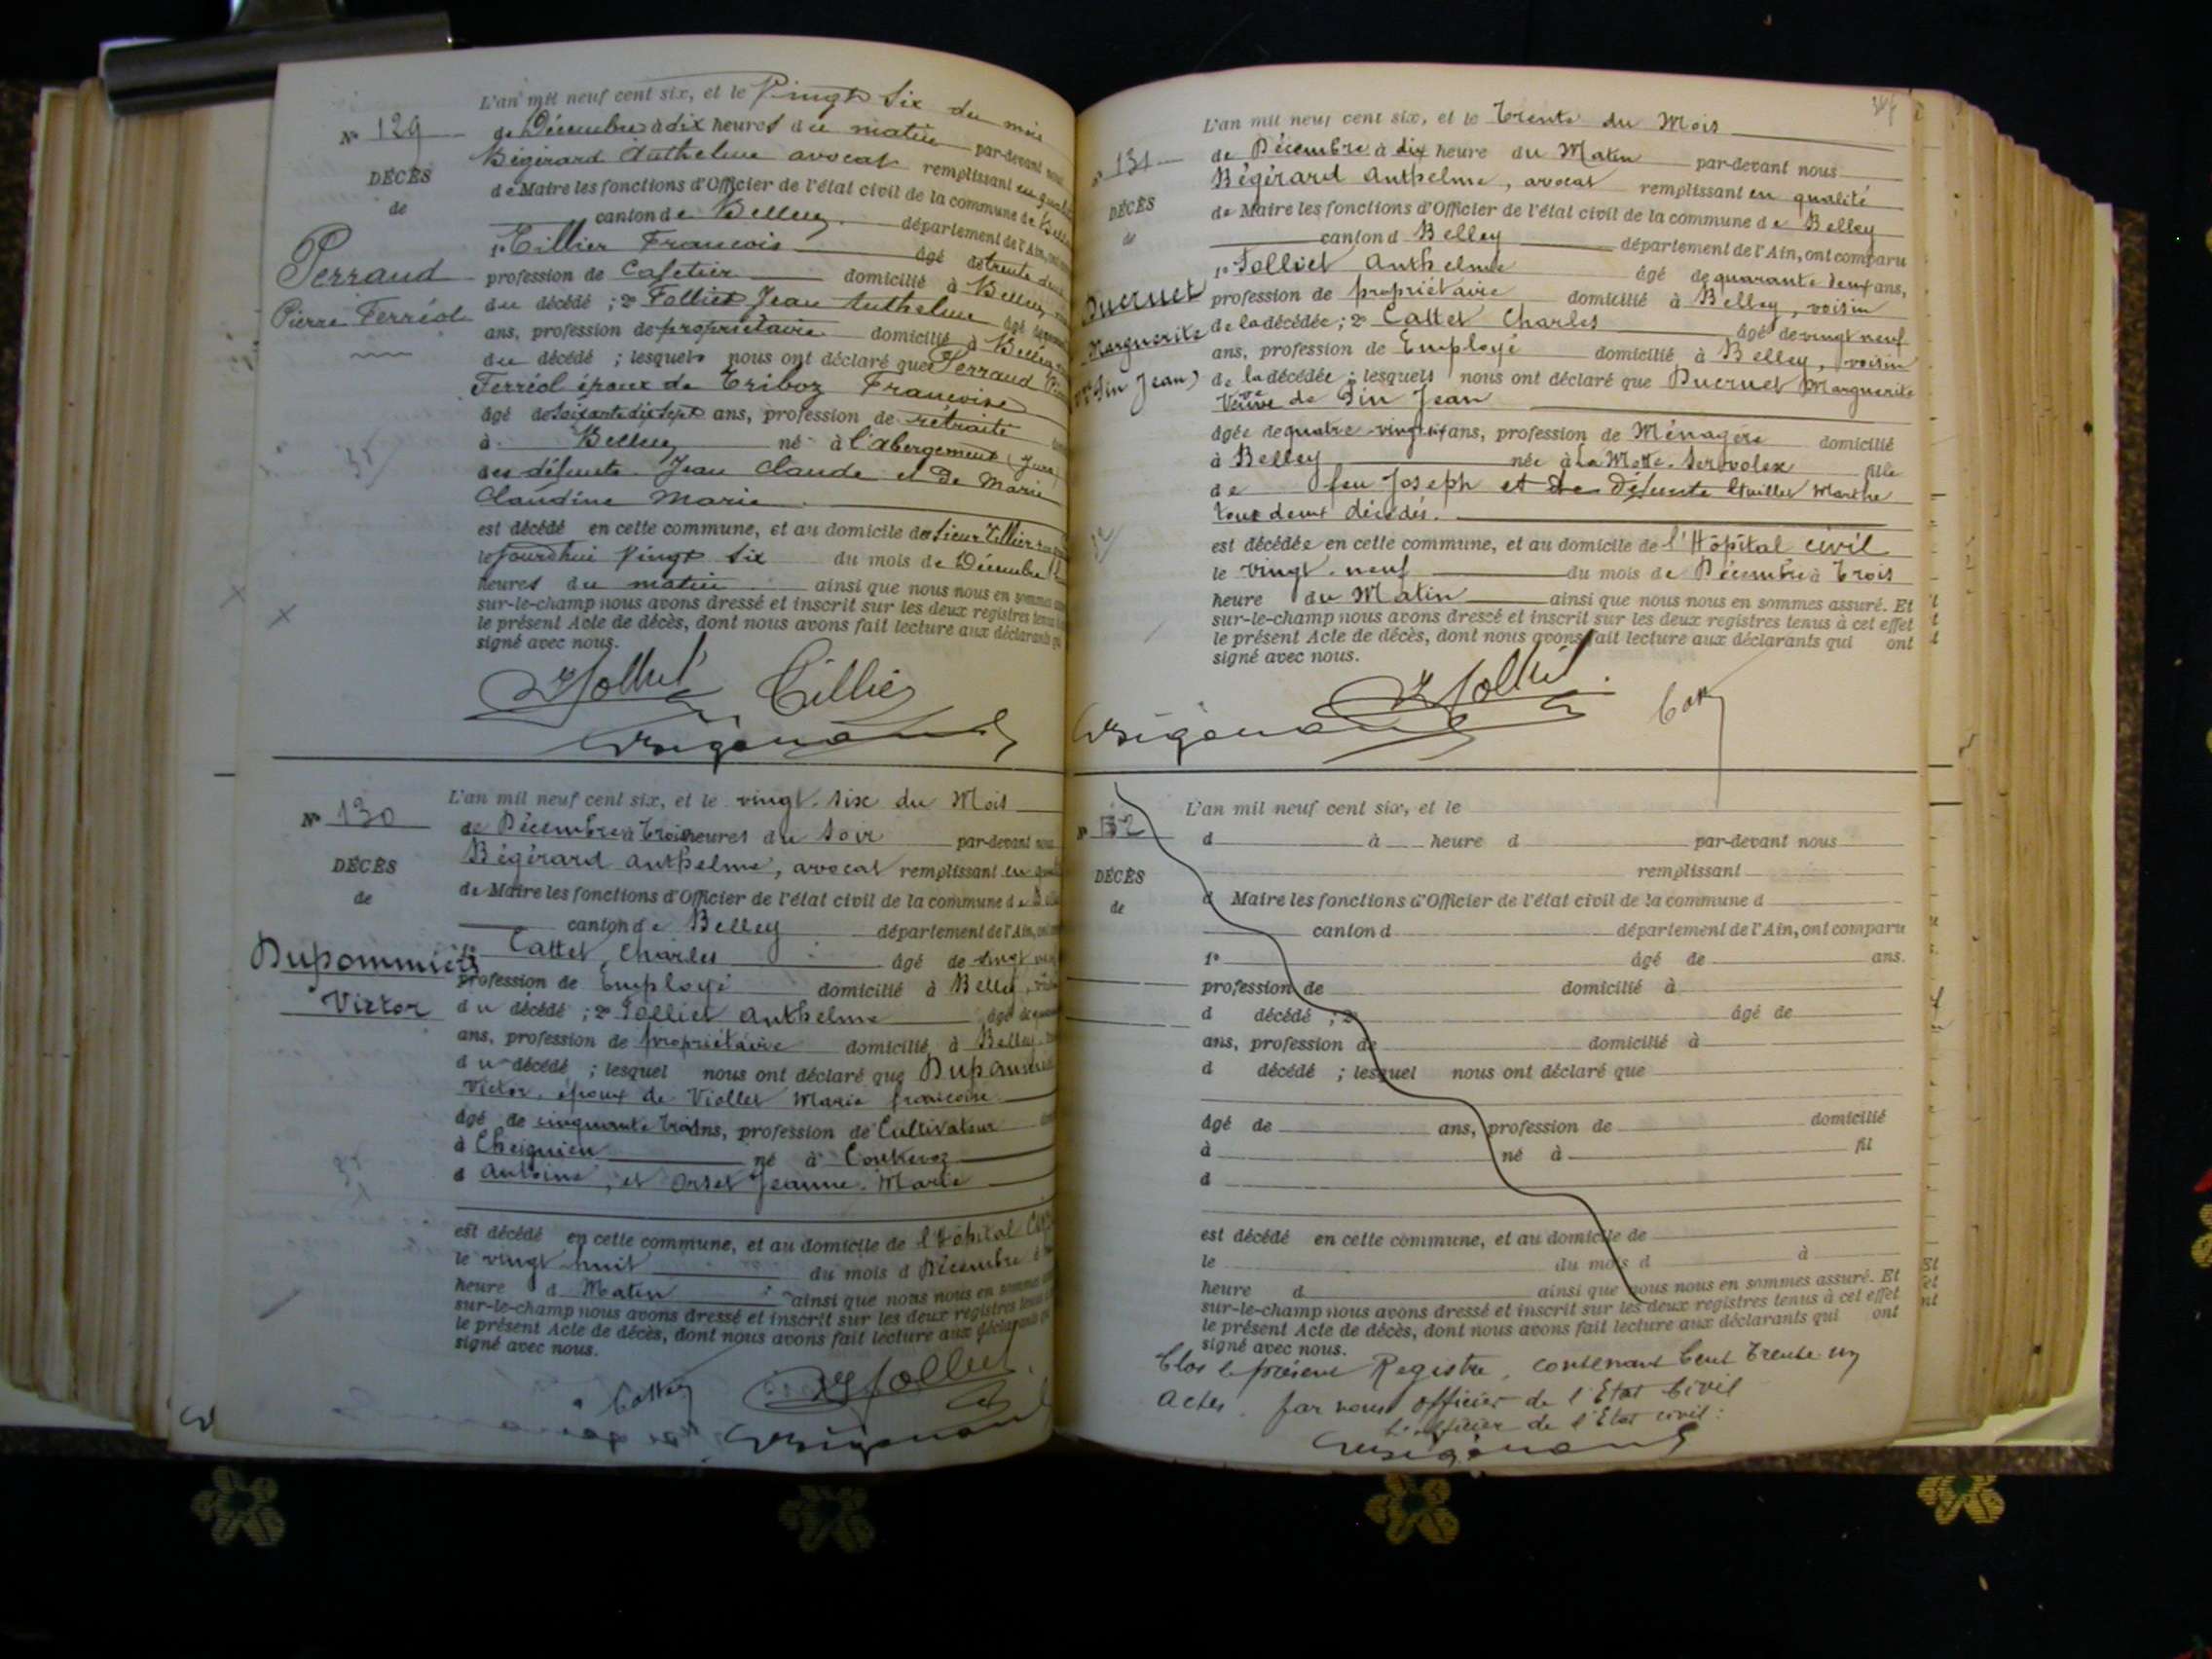 L'an mil neuf cent six, et le Vingt Six du mois
N° 129
de Décembre à dix heures du matin par-devant nous
Bégérard Anthelme avocat remplissant en qualité
DÉCÈS
de Maire les fonctions d'Officier de l'état civil de la commune de
de
canton de Belley département de l'Ain,
1° Tillier Francois âgé de trente deux
Perraud
profession de Cafetier domicilié à Belley
Pierre Ferréol
du décédé ; 2° Folliet Jean Anthelme âgé de
ans, profession de propriétaire domicilié à Belley
du décédé ; lesquels nous ont déclaré que Perraud
Ferréol époux de Triboz Francoise
âgé de soixante dix sept ans, profession de retraité
à Belley né à l'abergement (Jura)
des défunts Jean Claude et de Marie
Claudine Marie
est décédé en cette commune, et au domicile du Sieur Tillier
le jourdhui Vingt Six du mois de Décembre
heures du matin ainsi que nous nous en sommes
sur-le-champ nous avons dressé et inscrit sur les deux registres tenus
le présent Acte de décès, dont nous avons fait lecture aux déclarants qui
signé avec nous.
Folliet Tillier
Bégérard
L'an mil neuf cent six, et le vingt-six du Mois
N° 130
de Décembre à Trois heures du Soir par-devant nous
Bégérard Anthelme, avocat remplissant en
DÉCÈS
de Maire les fonctions d'Officier de l'état civil de la commune de
de
canton de Belley département de l'Ain,
Dupommier
Cattet, Charles âgé de vingt
profession de Employé domicilié à Belley,
Victor
du décédé ; 2° Folliet Anthelme âgé de
ans, profession de propriétaire domicilié à Belley
du décédé ; lesquel nous ont déclaré que
Victor, époux de Viollet Marie francoise
âgé de cinquante trois ans, profession de Cultivateur
à Cheignieu né à
d Antoine, et Orset Jeanne-Marie
est décédé en cette commune, et au domicile de l'Hôpital
le vingt huit du mois d Décembre à
heure d Matin ainsi que nous nous en sommes
sur-le-champ nous avons dressé et inscrit sur les deux registres tenus
le présent Acte de décès, dont nous avons fait lecture aux déclarants qui
signé avec nous.
Cattet Folliet
Bégérard
L'an mil neuf cent six, et le Trente du Mois
N° 131
de Décembre à dix heure du Matin par-devant nous
Bégérard Anthelme, avocat remplissant en qualité
DÉCÈS
de Maire les fonctions d'Officier de l'état civil de la commune de Belley
de
canton d Belley département de l'Ain, ont comparu
1° Folliet Anthelme âgé de quarante deux ans,
Ducruet
profession de propriétaire domicilié à Belley, voisin
Marguerite
de la décédée ; 2° Cattet Charles âgé de vingt neuf
ans, profession de Employé domicilié à Belley, voisin
(Vve Pin Jean)
de la décédée ; lesquels nous ont déclaré que Ducruet Marguerite
Veuve de Pin Jean
âgée de quatre-vingt six ans, profession de Ménagère domicilié
à Belley née à La Motte-Servolex fille
de feu Joseph et de défunte Marthe
tous deux décédés.
est décédée en cette commune, et au domicile de l'Hôpital civil
le vingt-neuf du mois de Décembre à Trois
heure du Matin ainsi que nous nous en sommes assuré. Et
sur-le-champ nous avons dressé et inscrit sur les deux registres tenus à cet effet
le présent Acte de décès, dont nous avons fait lecture aux déclarants qui ont
signé avec nous.
Folliet
Bégérard
L'an mil neuf cent six, et le
N° 132
d à heure d par-devant nous
DÉCÈS
remplissant
de
d Maire les fonctions d'Officier de l'état civil de la commune d
canton d département de l'Ain, ont comparu
1° âgé de ans.
profession de domicilié à
d décédé ; 2° âgé de
ans, profession de domicilié à
d décédé ; lesquel nous ont déclaré que
âgé de ans, profession de domicilié
à né à fil
d
est décédé en cette commune, et au domicile de
le du mois d à
heure d ainsi que nous nous en sommes assuré. Et
sur-le-champ nous avons dressé et inscrit sur les deux registres tenus à cet effet
le présent Acte de décès, dont nous avons fait lecture aux déclarants qui ont
signé avec nous.
Clos le présent Registre, contenant Cent Trente un
Actes par nous officier de l'Etat Civil
L'officier de l'Etat civil :
Bégérard